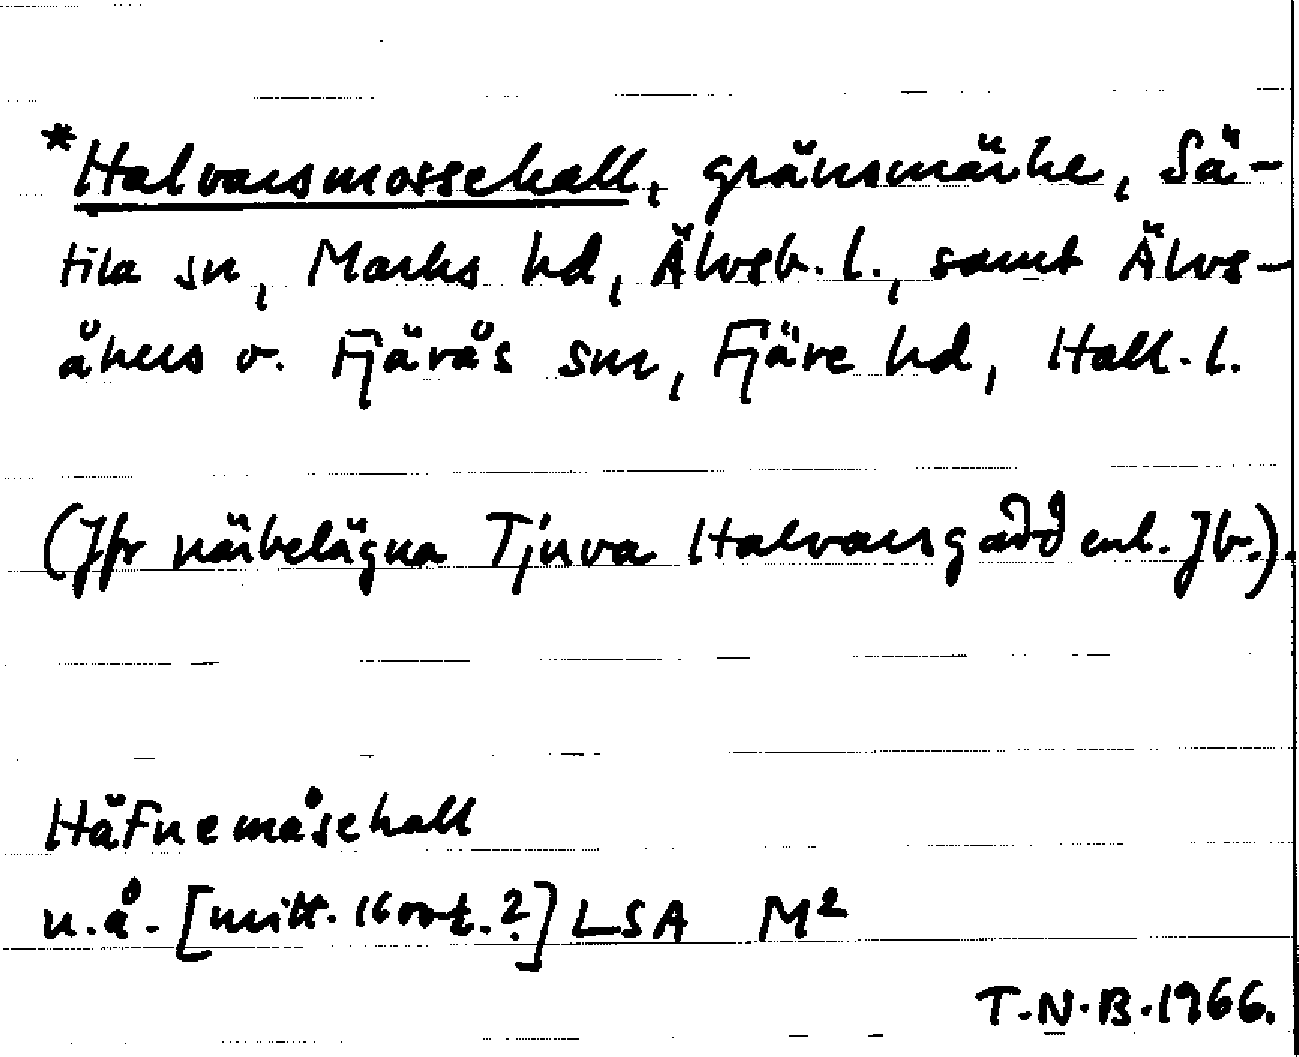 *Halvarsmossehall, gränsmärke, Sä-
tila sn, Marks hd, Älvsb. l., samt Älvs-
åkers o. Fjärås snr, Fjäre hd, Hall. l.
(Jfr närbelägna Tjuva Halvarsgadd enl. Jb.).
Häfnemåsehall
u.å. [mitt. 1600-t.?] LSA M²
T.N.B. 1966.